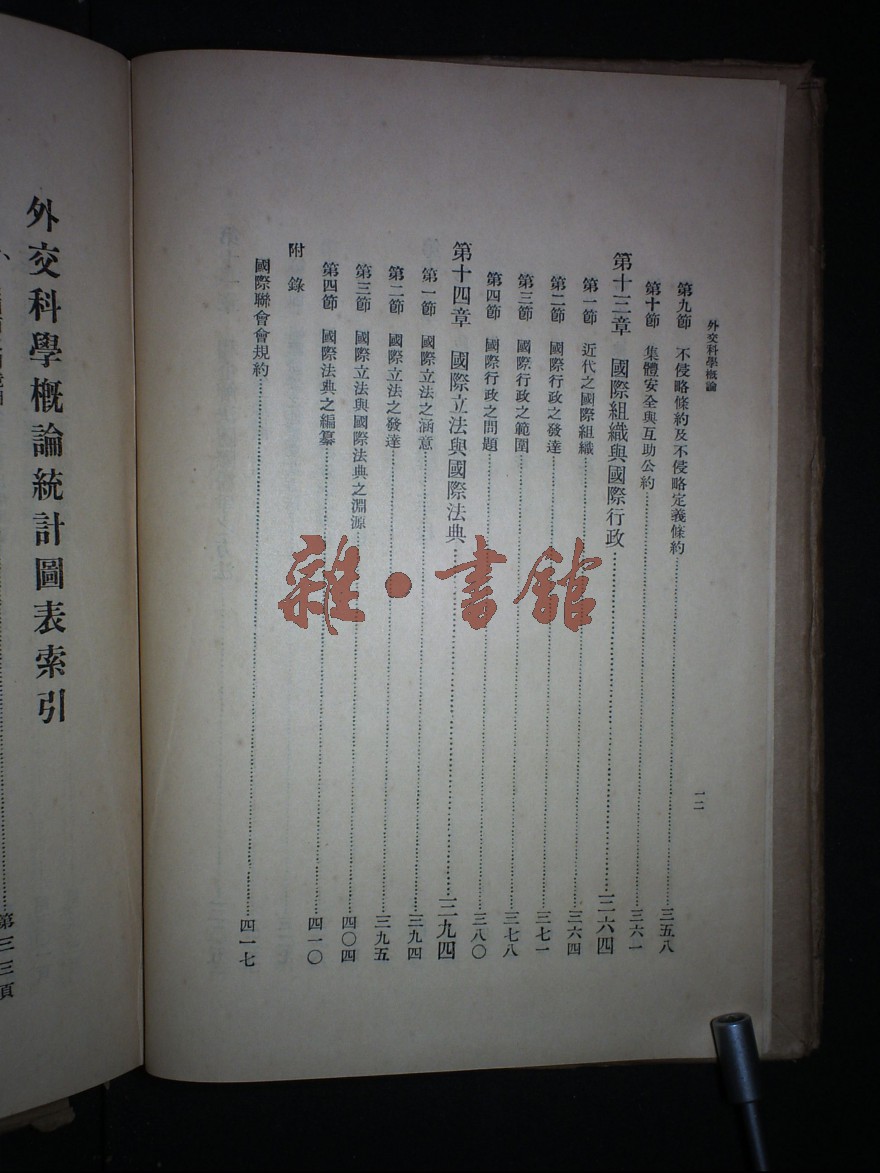 外交科學概論
一二
第九節 不侵略條約及不侵略定義條約……三五八
第十節 集體安全與互助公約……三六一
第十三章 國際組織與國際行政……三六四
第一節 近代之國際組織……三六四
第二節 國際行政之發達……三七一
第三節 國際行政之範圍……三七八
第四節 國際行政之問題……三八〇
第十四章 國際立法與國際法典……三九四
第一節 國際立法之涵意……三九四
第二節 國際立法之發達……三九五
第三節 國際立法與國際法典之淵源……四〇四
第四節 國際法典之編纂……四一〇
附錄
國際聯會會規約……四一七
雜·書館
外交科學概論統計圖表索引